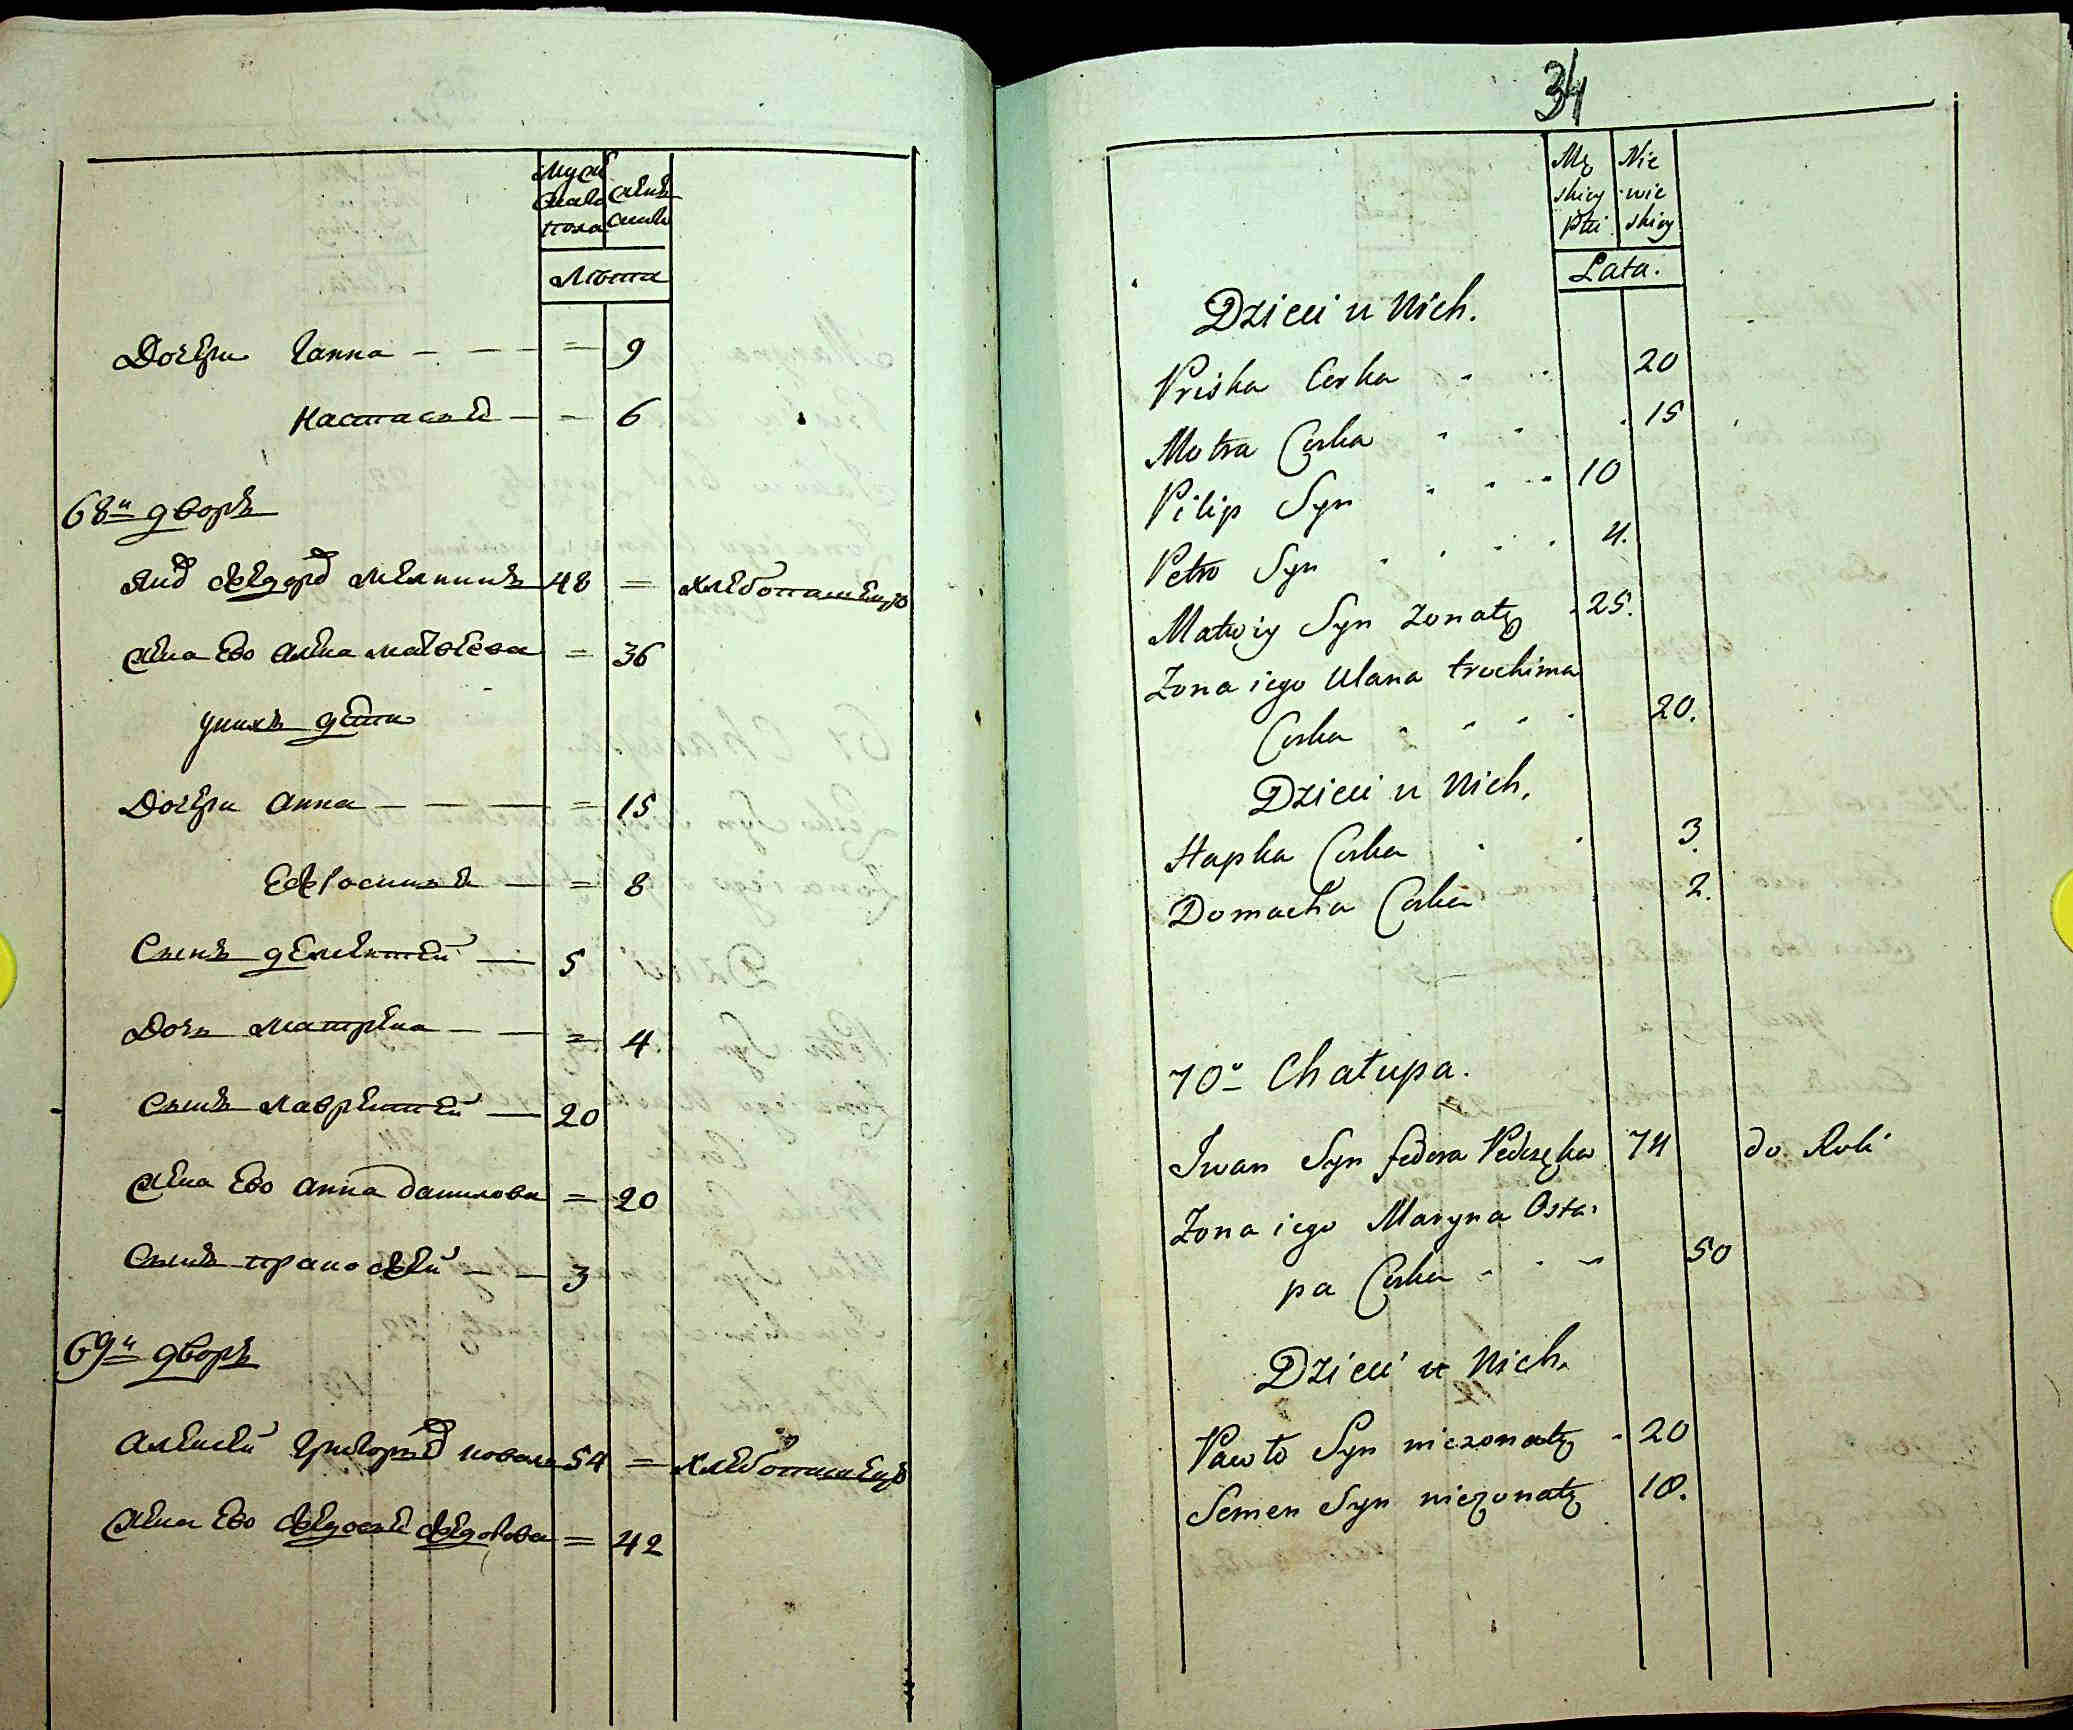 Мужеска пола
женска
Лѣта
Дочери Ганна — — — = 9
Настасия — = 6
68й дворъ
Яковъ Федоровъ Мелникъ 48 = хлебопашецъ
жена Ево Алена матвеева = 36
у нихъ дети
Дочери Анна — — — = 15
Ефросиния — = 8
Сынъ дементей — 5
Дочь матрена — — = 4
Сынъ лаврентей — 20
жена Ево Анна данилова = 20
Сынъ прокофей — — 3
69й дворъ
Алексей Григорьевъ коваль 54 = хлебопашецъ
жена Ево Федосия Федорова = 42
34
Męskiey Płci
Niewieskiey
Lata.
Dzieci u Nich.
Priska Corka 20
Motra Corka 15
Pilip Syn 10
Petro Syn 4.
Matwiy Syn zonaty 25.
Zona iego Ulana trochima
Corka 20.
Dzieci u Nich,
Hapka Corka 3.
Domacha Corka 2.
70a Chałupa.
Iwan Syn fedora 74 do Roli
Zona iego Maryna Osta-
pa Corka 50
Dzieci u Nich.
Pawło Syn niezonaty 20
Semen Syn niezonaty 18.